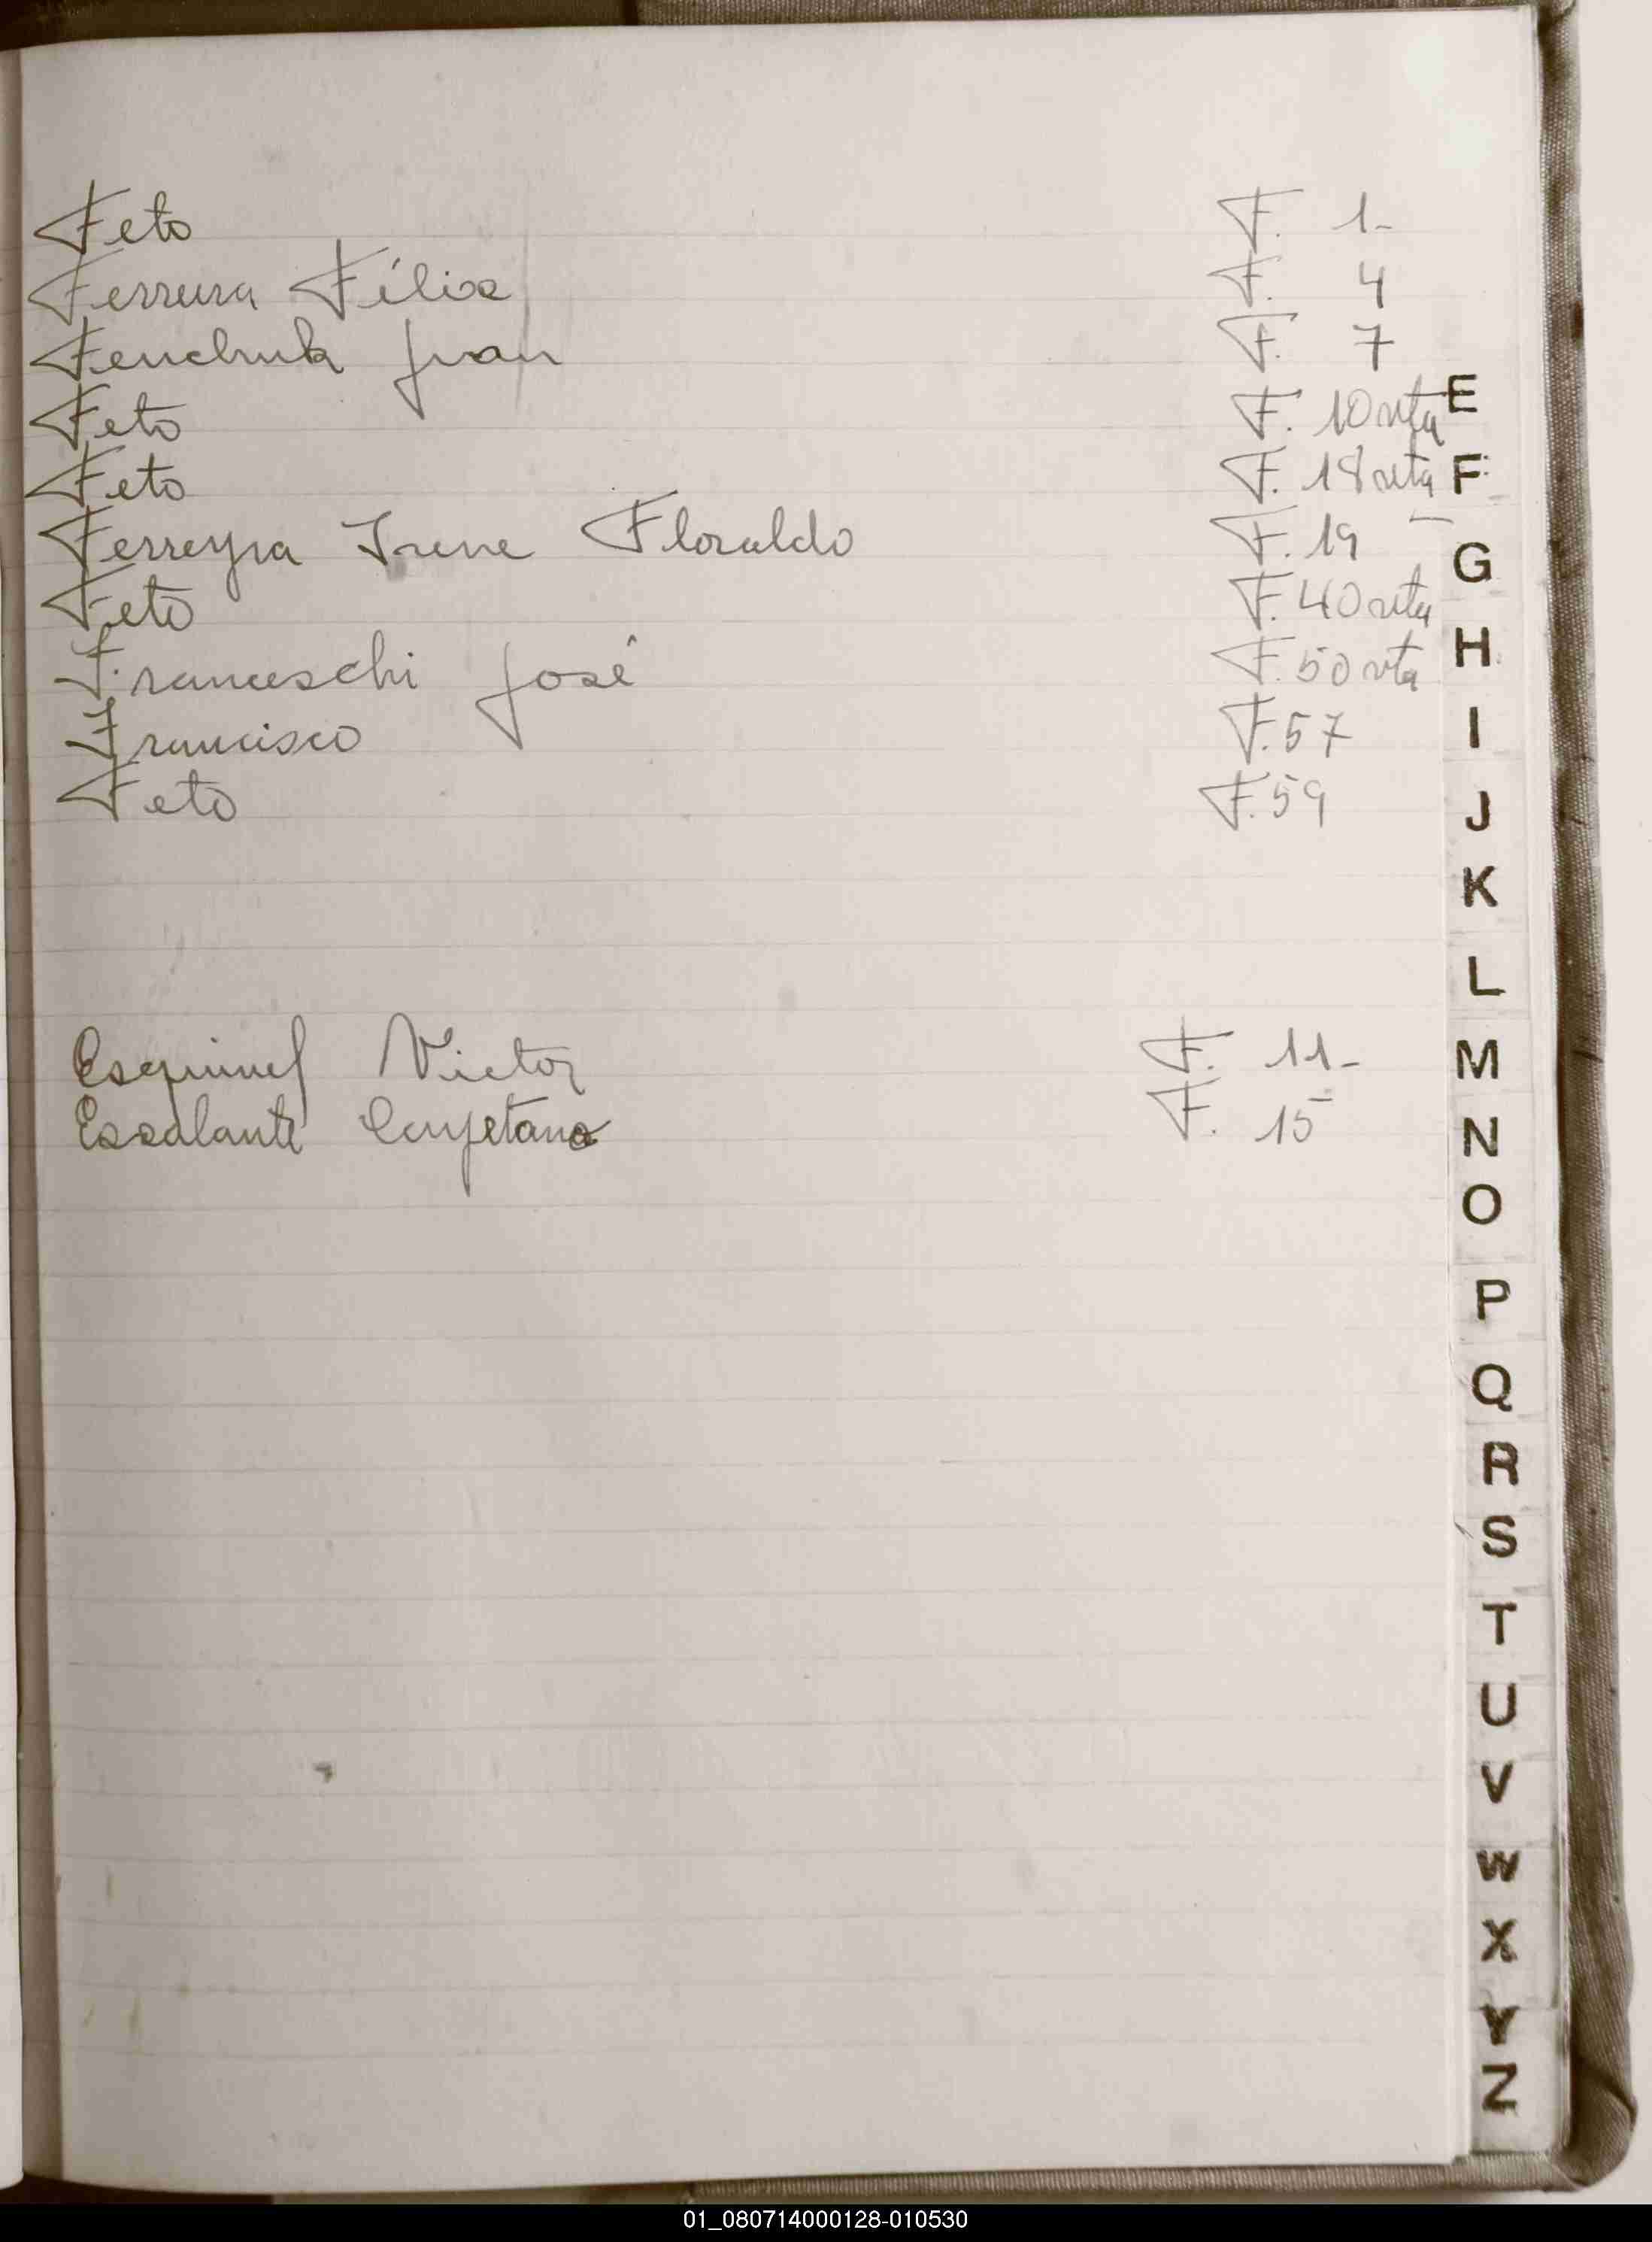 Feto F. 1-
Ferreira Félix F. 4
Fenchuk Juan F. 7
Feto F. 10 vta
Feto F. 18 vta
Ferreyra Irene Floraldo F. 19
Feto F. 40 vta
Franceschi José F. 50 vta
Francisco F. 57
Feto F. 59
Esquivel Victor F. 11-
Escalante Cayetano F. 15
E
F
G
H
I
J
K
L
M
N
O
P
Q
R
S
T
U
V
W
X
Y
Z
01_080714000128-010530